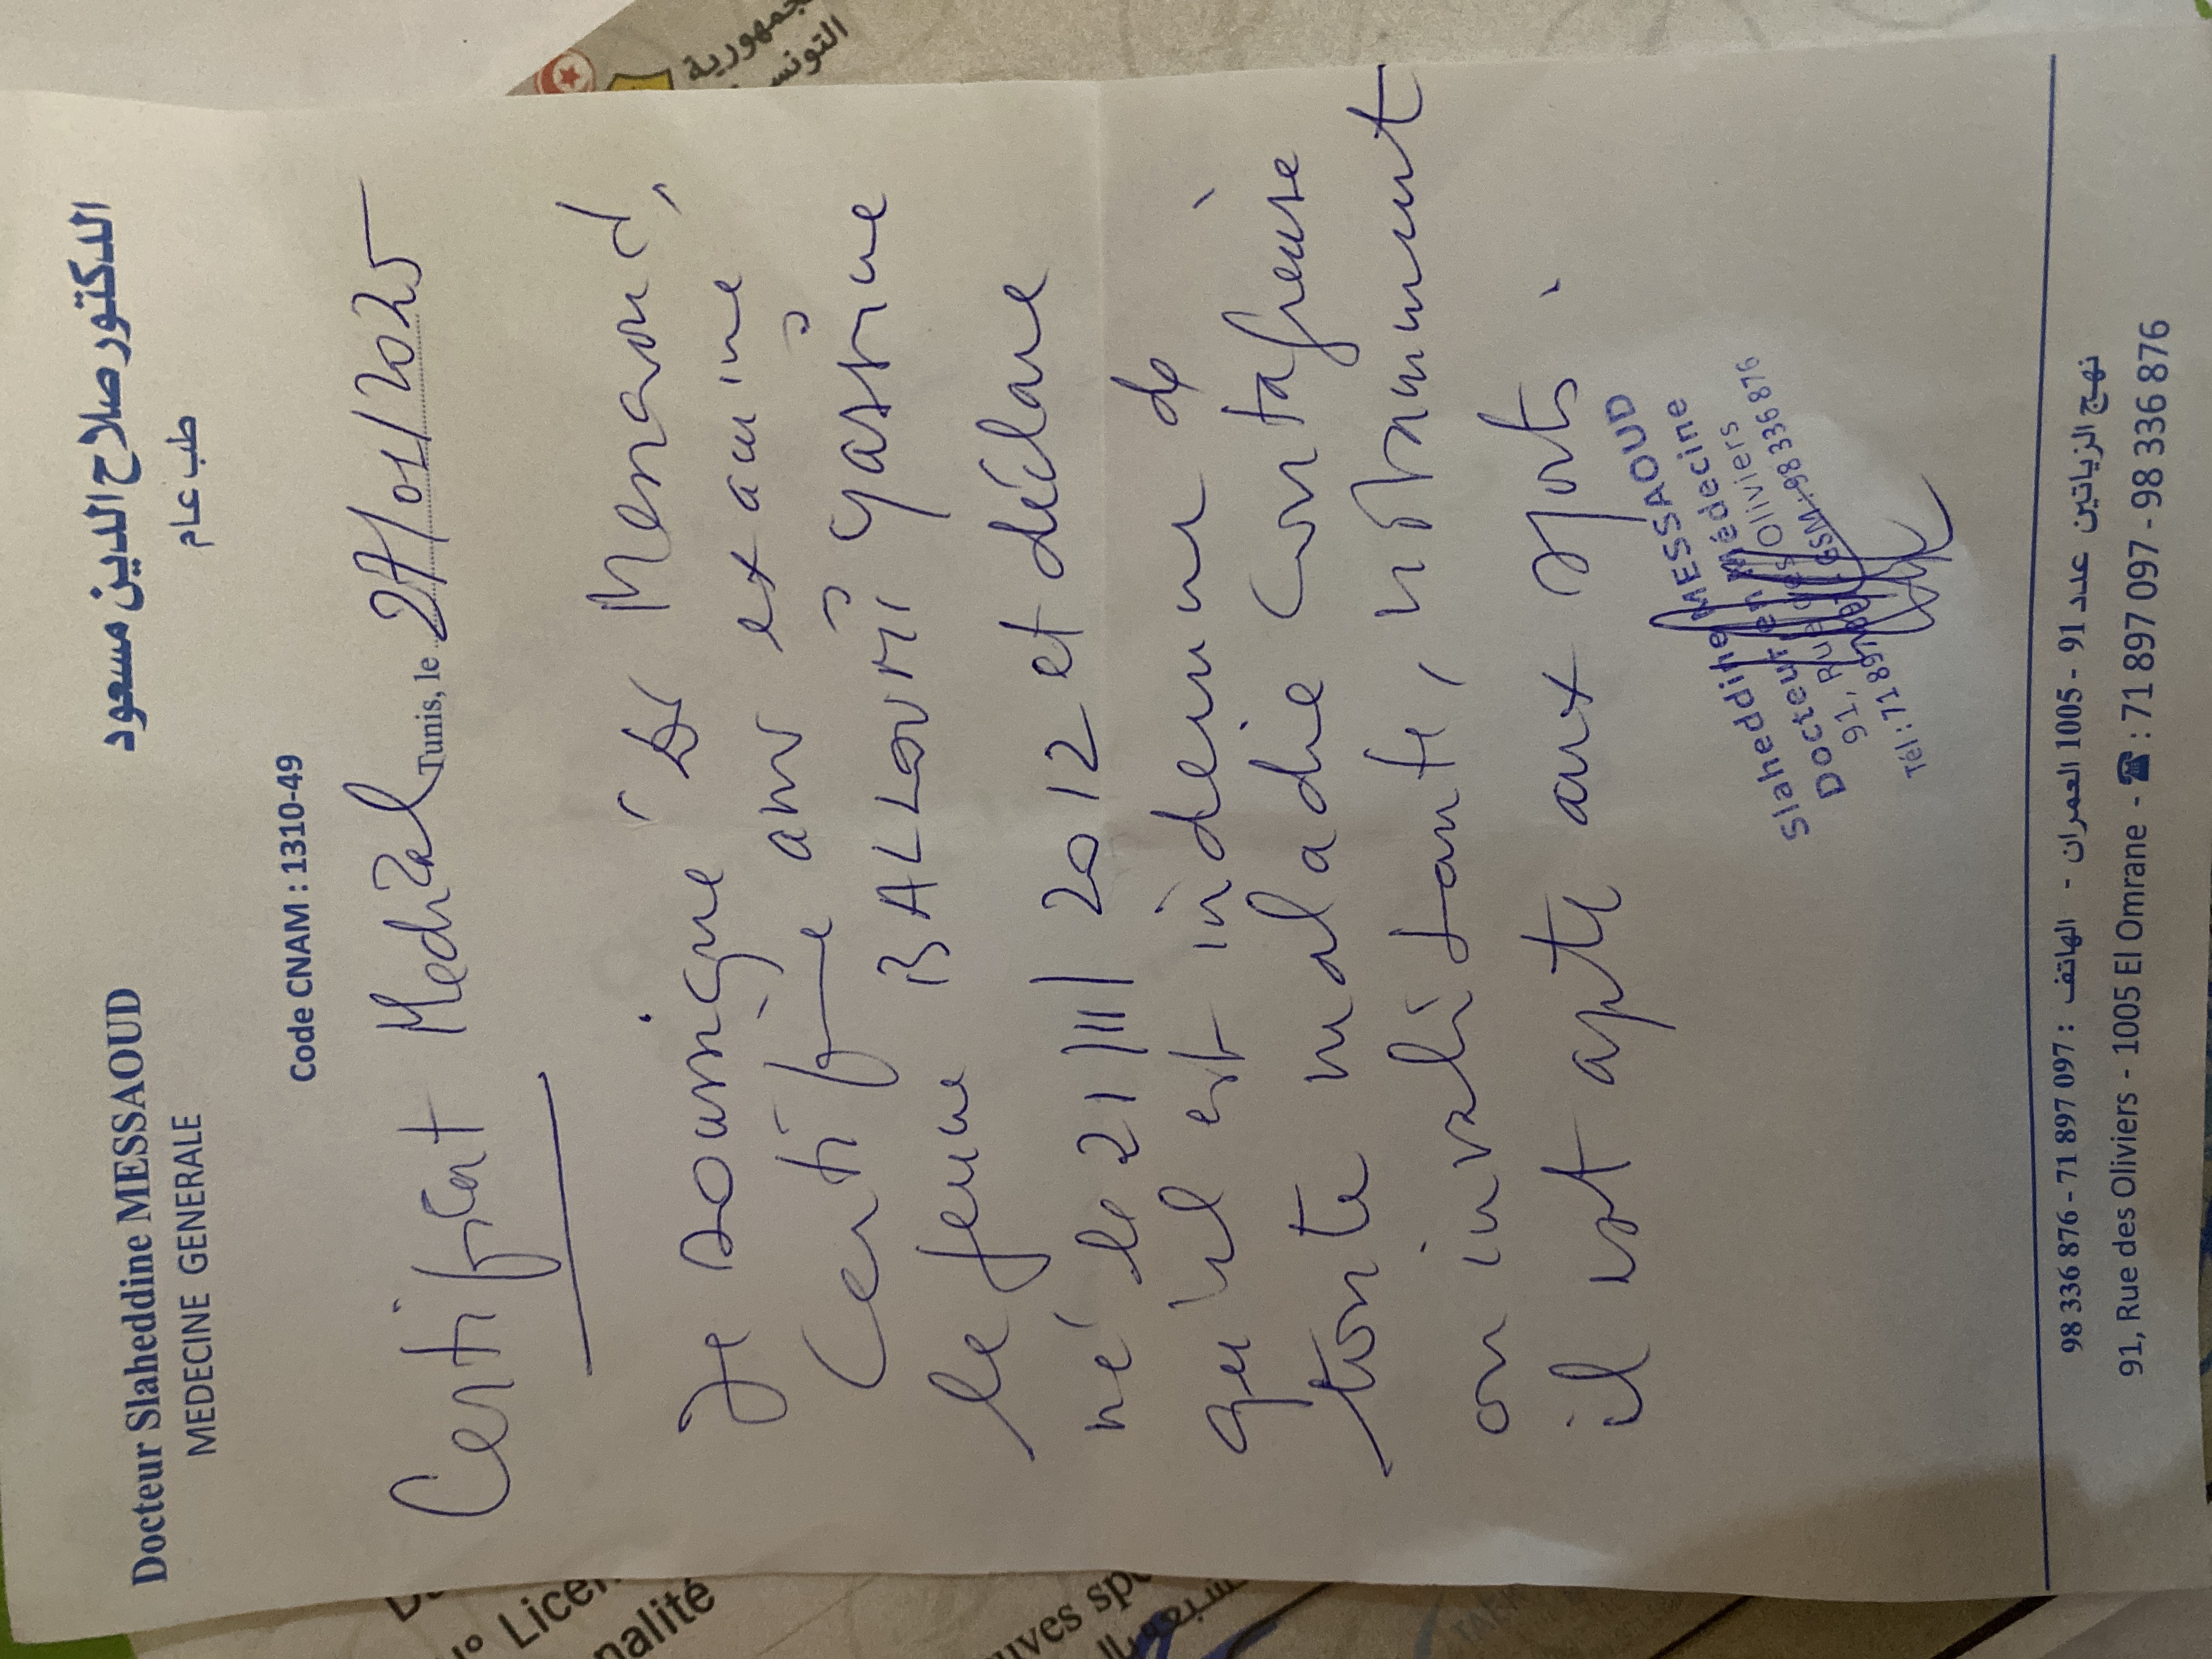 Docteur Slaheddine MESSAOUD
MEDECINE GENERALE
الدكتور صلاح الدين مسعود
طب عام
Code CNAM : 1310-49
Certificat Medical
Tunis, le 27/01/2025
Je soussigné Dr Messaoud,
Certifie avoir examiné
le jeune BALLOUTI Yassine
né le 21/11/2012 et déclare
qu'il est indemne de
toute maladie contagieuse
ou invalidante, notamment
il est apte aux sports.
Slaheddine MESSAOUD
Docteur en Médecine
91, Rue des Oliviers
Tél : 71 897 GSM : 98 336 876
نهج الزياتين عدد 91 - 1005 العمران - الهاتف : 71 897 097 - 98 336 876
91, Rue des Oliviers - 1005 El Omrane - ☎ : 71 897 097 - 98 336 876
جمهورية
التونس
N° Licen
nalité
uves sp